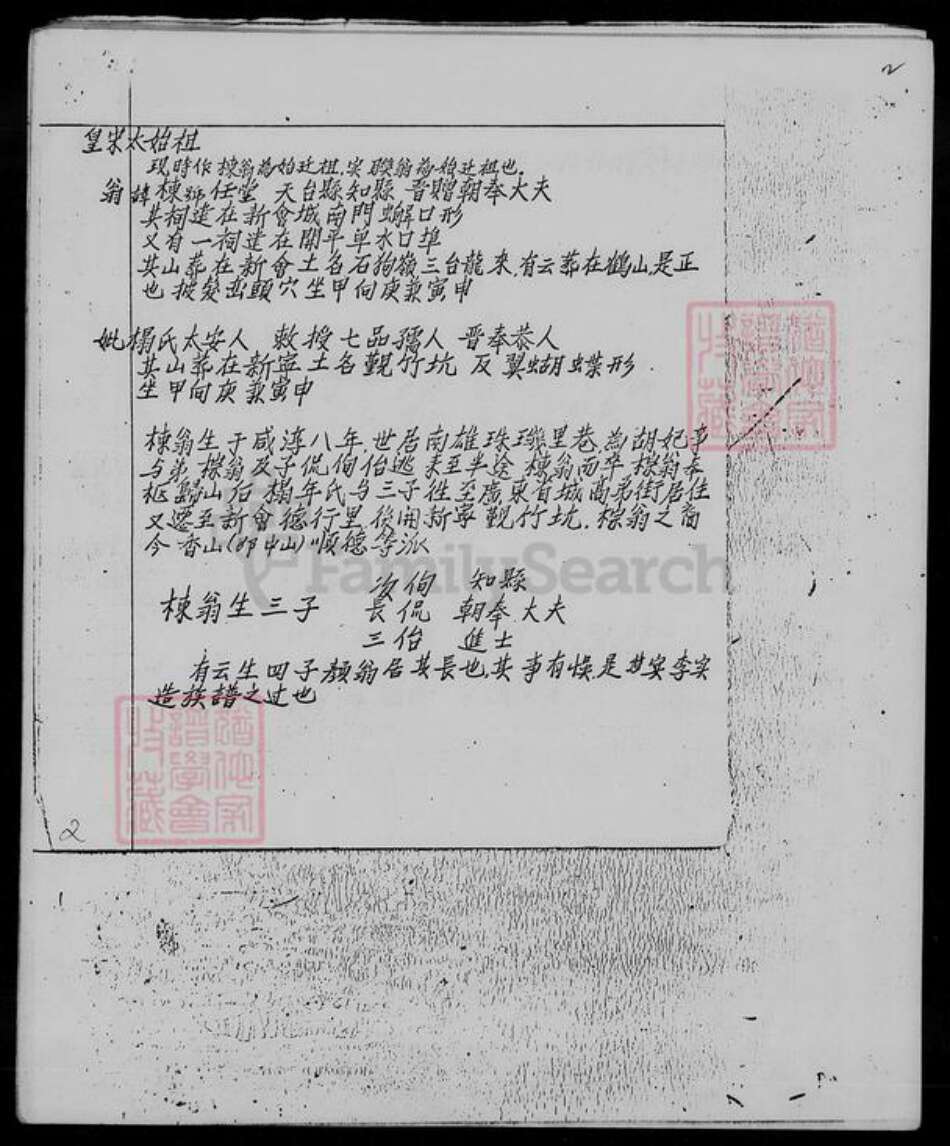 2
皇宋太始祖
現時作棟翁為始迁祖.实聯翁為始迁祖也.
翁諱棟號任堂 天台縣知縣 晋贈朝奉大夫
其祠建在新會城南門蠏口形
又有一祠建在開平单水口埠
其山葬在新會土名石狗嶺三台龍來,有云葬在鶴山,是正
也 披髮巒顕穴坐甲向庚兼寅申
妣楊氏太安人 敕授七品孺人 晋奉恭人
其山葬在新寧土名觀竹坑 反翼蝴蝶形.
坐甲向庚兼寅申
棟翁生于咸淳八年世居南雄珠璣里巷為胡妃事
与弟棕翁及子侃侚佁逃 来至半途 棟翁而卒 棕翁奉
柩歸山后 楊年氏与三子徃至廣東省城高弟街居住
又遷至新會德行里 後開新寧觀竹坑. 棕翁之裔
今香山(即中山)順德等派
次侚 知縣
棟翁生三子 長侃 朝奉大夫
三佁 進士
有云生四子顏翁居其長也,其事有悞,是其安李实
造族譜之过也
2
FamilySearch